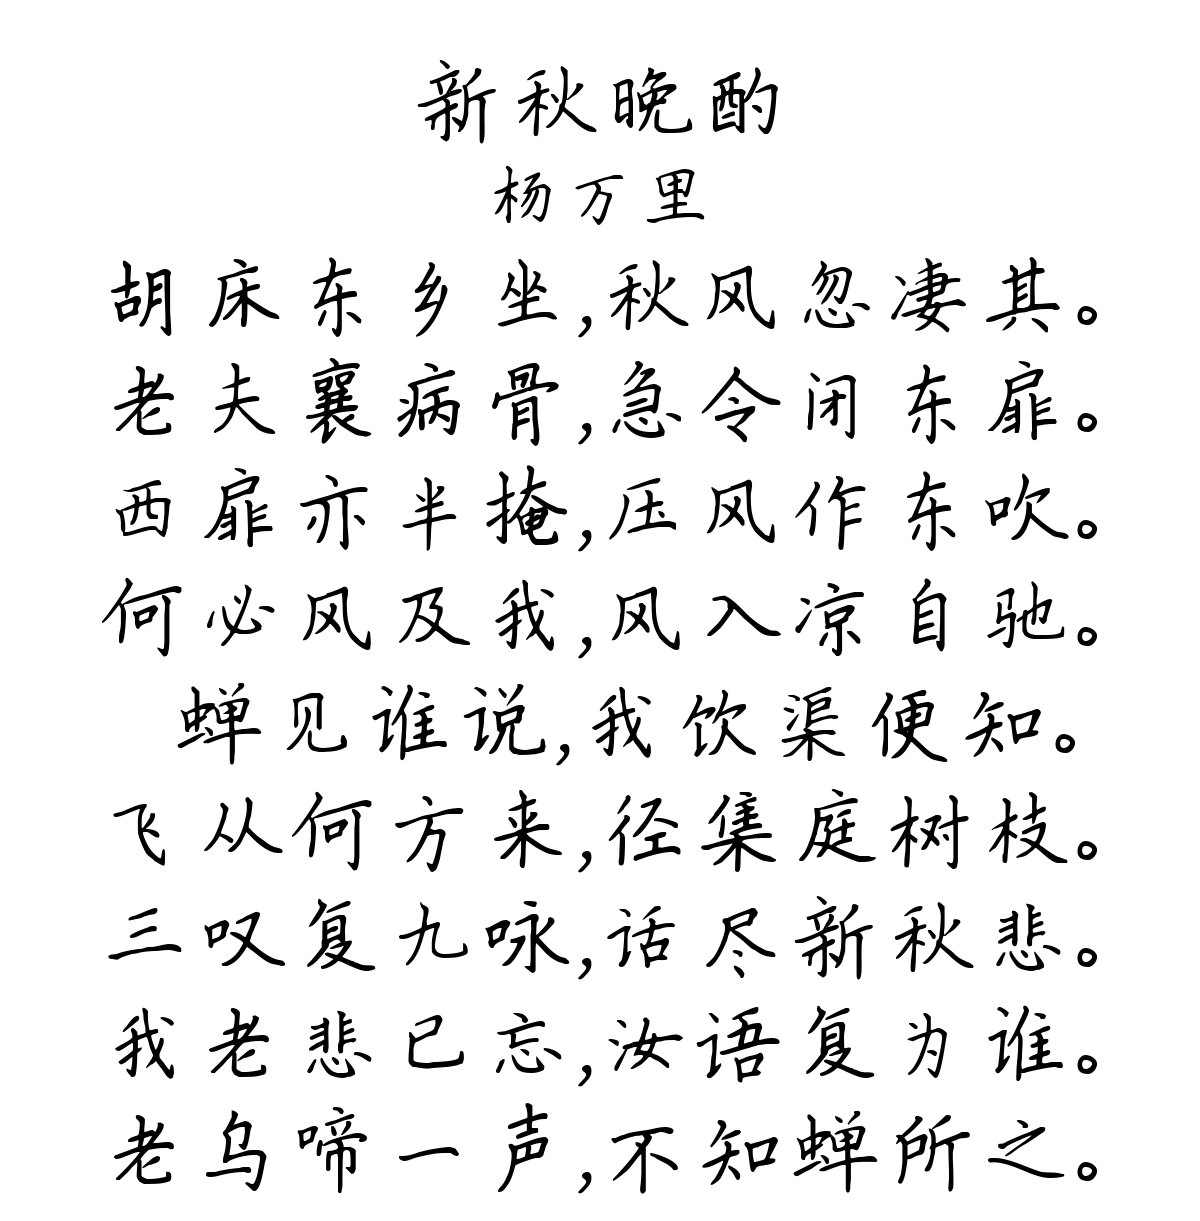 新秋晚酌
杨万里
胡床东乡坐,秋风忽凄其。
老夫襄病骨,急令闭东扉。
西扉亦半掩,压风作东吹。
何必风及我,风入凉自驰。
蝉见谁说,我饮渠便知。
飞从何方来,径集庭树枝。
三叹复九咏,话尽新秋悲。
我老悲已忘,汝语复为谁。
老乌啼一声,不知蝉所之。